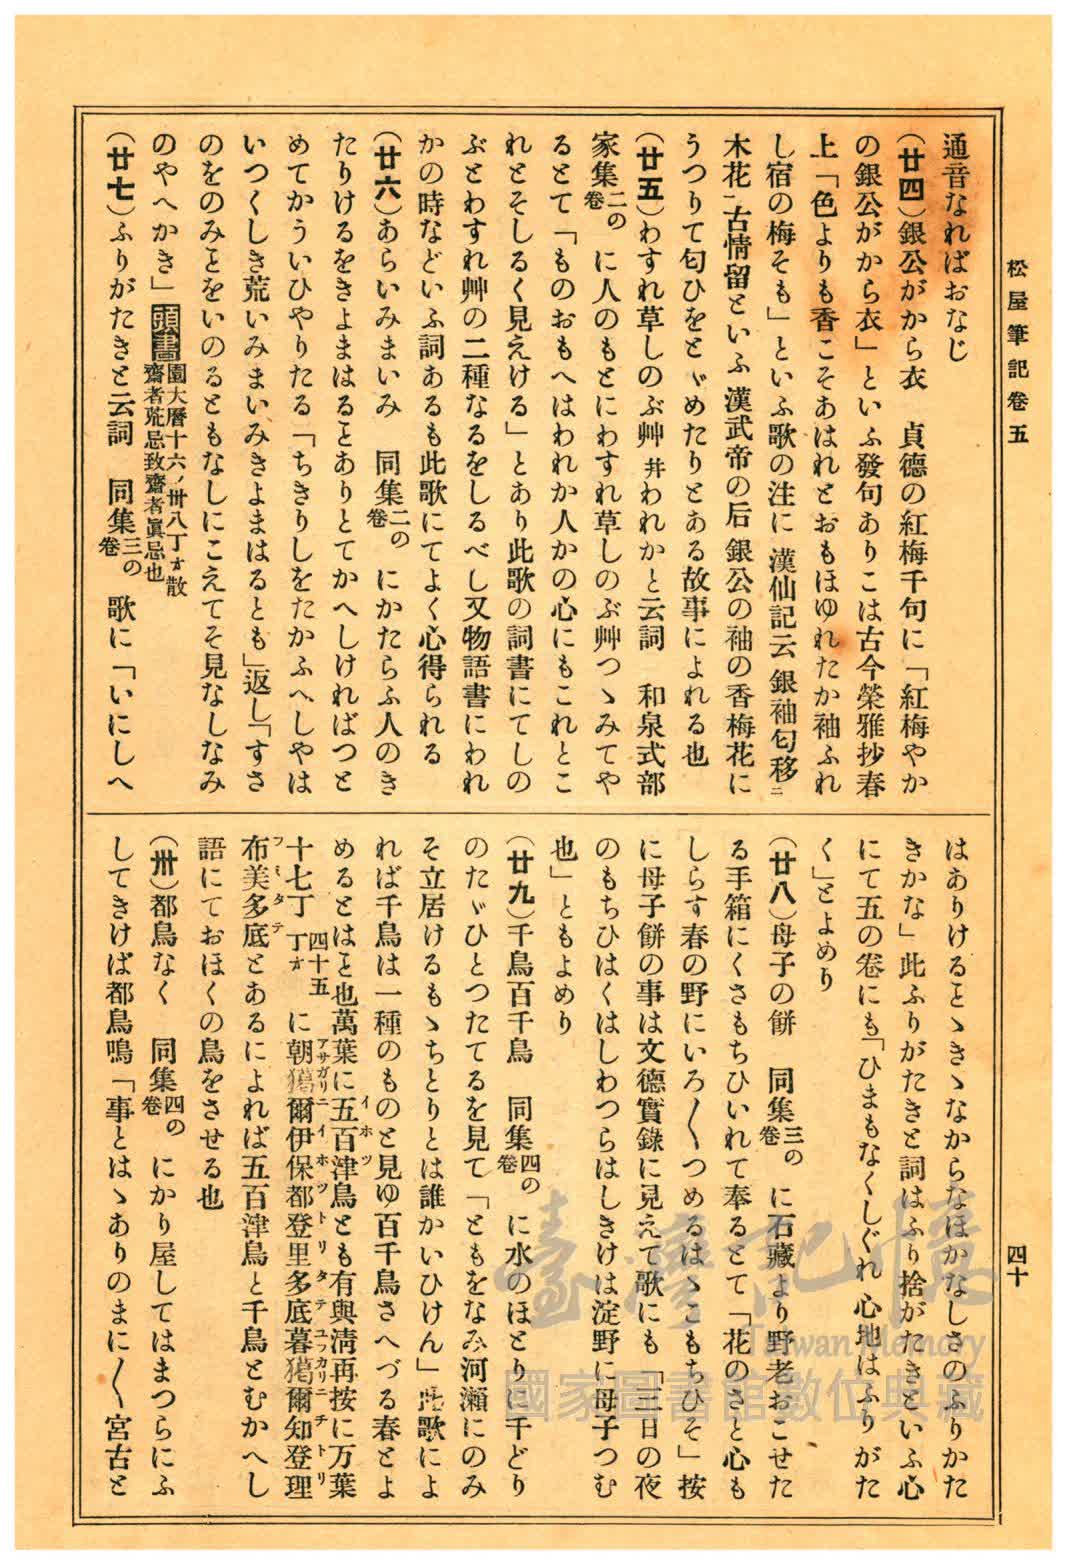 松屋筆記卷五
四十
通音なればおなじ
(廿四)銀公がから衣 貞德の紅梅千句に「紅梅やか
の銀公がから衣」といふ發句ありこは古今榮雅抄春
上「色よりも香こそあはれとおもほゆれたか袖ふれ
し宿の梅そも」といふ歌の注に漢仙記云銀袖匂移ニ
木花一古情留といふ漢武帝の后銀公の袖の香梅花に
うつりて匂ひをとゞめたりとある故事によれる也
(廿五)わすれ草しのぶ艸幷われかと云詞 和泉式部
家集二の卷に人のもとにわすれ草しのぶ艸つゝみてや
るとて「ものおもへはわれか人かの心にもこれとこ
れとそしるく見えける」とあり此歌の詞書にてしの
ぶとわすれ艸の二種なるをしるべし又物語書にわれ
かの時などいふ詞あるも此歌にてよく心得られる
(廿六)あらいみまいみ 同集二の卷にかたらふ人のき
たりけるをきよまはるヿありとてかへしければつと
めてかういひやりたる「ちきりしをたかふへしやは
いつくしき荒いみまいみきよまはるとも」返し「すさ
のをのみヿをいのるともなしにこえてそ見なしなみ
のやへかき」頭書園大曆十六ノ卅八丁オ散
齋者荒忌致齋者眞忌也
(廿七)ふりがたきと云詞 同集三の卷 歌に「いにしへ
はありけるヿゝきゝなからなほかなしさのふりかた
きかな」此ふりがたきと詞はふり捨がたきといふ心
にて五の卷にも「ひまもなくしぐれ心地はふりがた
く」とよめり
(廿八)母子の餠 同集三の卷に石藏より野老おこせた
る手箱にくさもちひいれて奉るとて「花のさと心も
しらす春の野にいろ〱つめるはゝこもちひそ」按
に母子餠の事は文德實錄に見えて歌にも「三日の夜
のもちひはくはしわつらはしきけは淀野に母子つむ
也」ともよめり
(廿九)千鳥百千鳥 同集四の卷に水のほとりに千どり
のたゞひとつたてるを見て「ともをなみ河瀨にのみ
そ立居けるもゝちとりとは誰かいひけん」此歌によ
れば千鳥は一種のものと見ゆ百千鳥さへづる春とよ
めるとはヿ也萬葉に五百津鳥とも有與淸再按に万葉
十七丁四十五丁オに朝獦爾伊保都登里多底暮獦爾知登理
布美多底とあるによれば五百津鳥と千鳥とむかへし
語にておほくの鳥をさせる也
(卅)都鳥なく 同集四の卷にかり屋してはまつらにふ
してきけば都鳥鳴「事とはゝありのまに〱宮古と